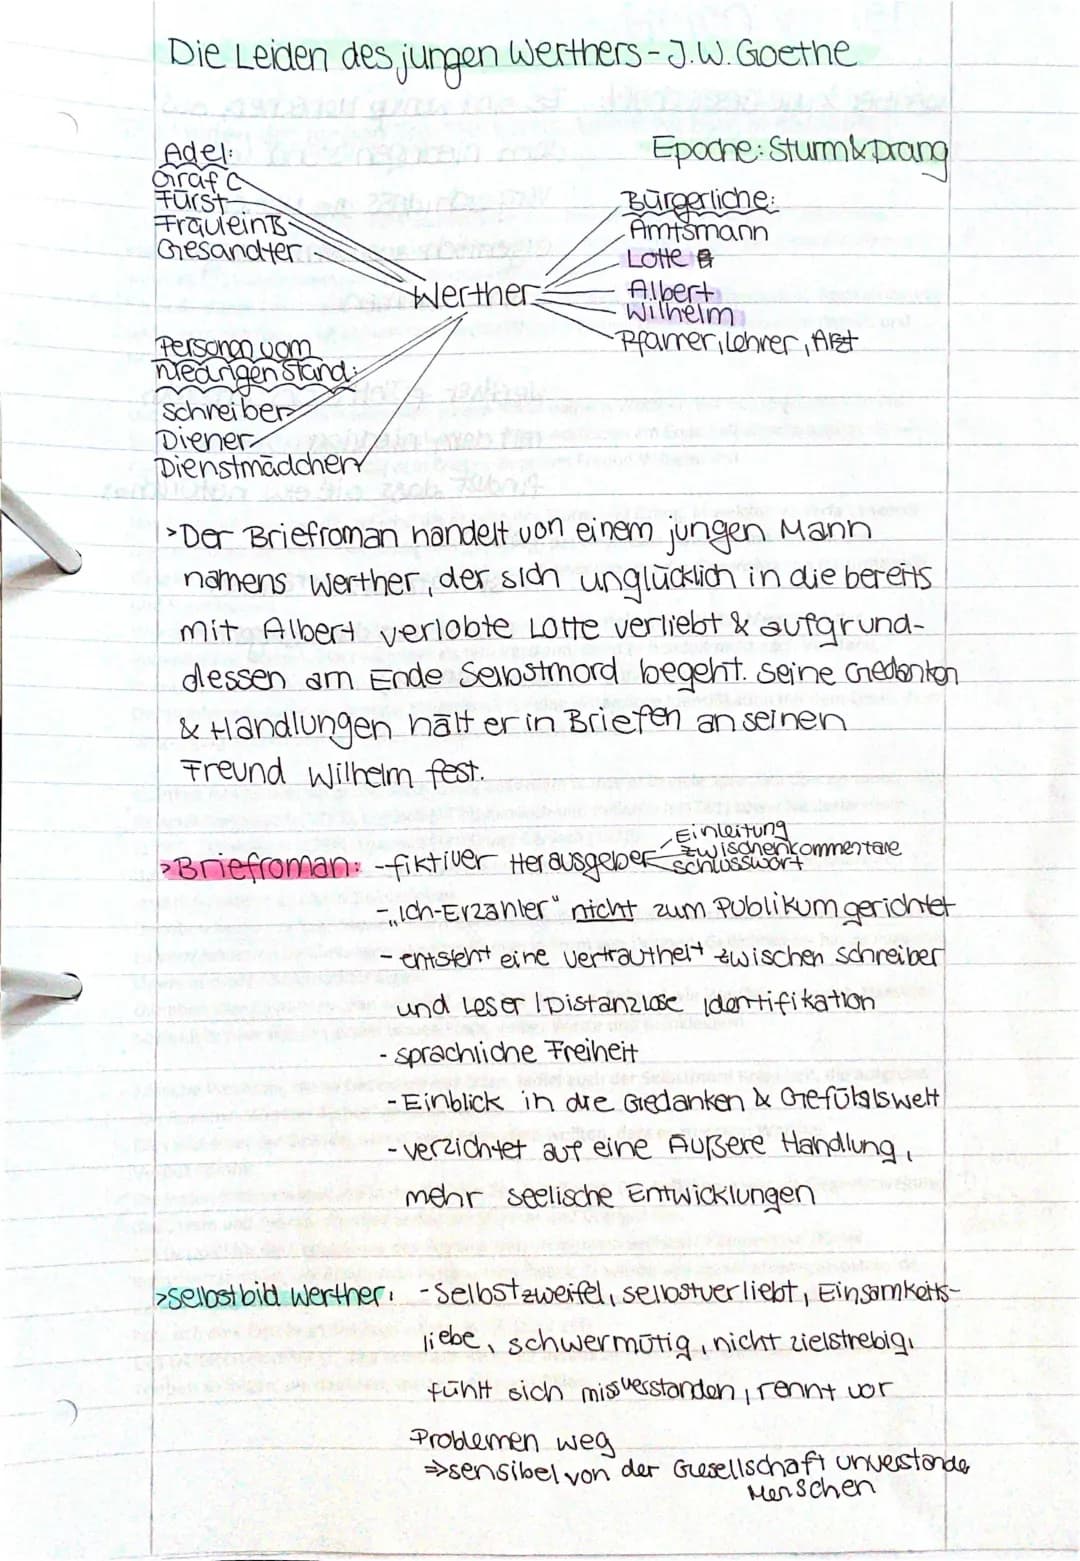 Die Leiden des jungen Werthers - J.W. Goethe
Epoche: Sturm & Drang
Adel:
Graf C
Fürst
Fräulein B
Gesandter
Bürgerliche:
Amtsmann
Lotte
Albert
Wilhelm
Pfarrer, Lehrer, Arzt
Werther
Personen vom
niedrigen Stand:
Schreiber
Diener
Dienstmädchen
>Der Briefroman handelt von einem jungen Mann
namens Werther, der sich unglücklich in die bereits
mit Albert verlobte Lotte verliebt & aufgrund-
dessen am Ende Selbstmord begeht. Seine Gedanken
& Handlungen hält er in Briefen an seinen
Freund Wilhelm fest.
>Briefroman: -fiktiver Herausgeber
Einleitung
Zwischenkommentare
Schlusswort
-„Ich-Erzähler" nicht zum Publikum gerichtet
- entsteht eine Vertrautheit zwischen Schreiber
und Leser / Distanzlose Identifikation
- sprachliche Freiheit
-Einblick in die Gedanken & Gefühlswelt
-verzichtet auf eine Äußere Handlung,
mehr seelische Entwicklungen
>Selbstbild Werther: -Selbstzweifel, selbstverliebt, Einsamkeits-
liebe, schwermütig, nicht zielstrebig,
fühlt sich missverstanden, rennt vor
Problemen weg
⇒sensibel von der Gesellschaft unverstande
Menschen